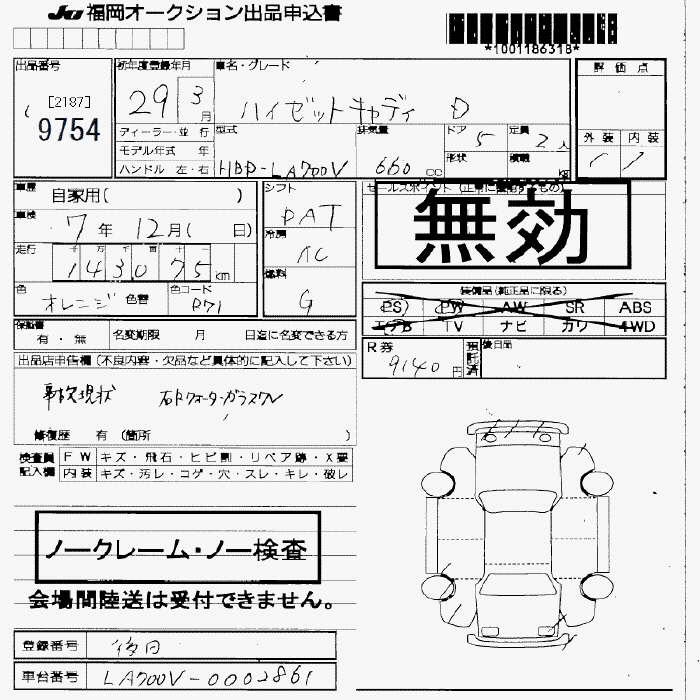 JU 福岡オークション出品申込書
*1001186318*
出品番号
[2187]
9754
初年度登録年月
29 3月
車名・グレード
ハイゼットキャディ D
評価点
外装 内装
ディーラー・並行
モデル年式 年
ハンドル 左・右
型式
HBD-LA700V
排気量
660 cc
ドア
5
形状
定員
2人
積載
kg
車歴
自家用( )
車検
7年 12月( 日)
走行
143075 km
色
オレンジ 色替
色コード
R71
シフト
DAT
冷房
AC
燃料
G
セールスポイント(正常に機能するもの)
無効
装備品(純正品に限る)
PS PW AW SR ABS
エアB TV ナビ カワ 4WD
R券
9140円
預託済
後日品
保証書
有・無
名変期限 月 日迄に名変できる方
出品店申告欄(不良内容・欠品など具体的に記入して下さい)
事故現状 右クォーターガラスワレ
修復歴 有 (箇所 )
検査員記入欄
FW キズ・飛石・ヒビ割・リペア跡・X要
内装 キズ・汚レ・コゲ・穴・スレ・キレ・破レ
ノークレーム・ノー検査
会場間陸送は受付できません。
登録番号
後日
車台番号
LA700V-0002861